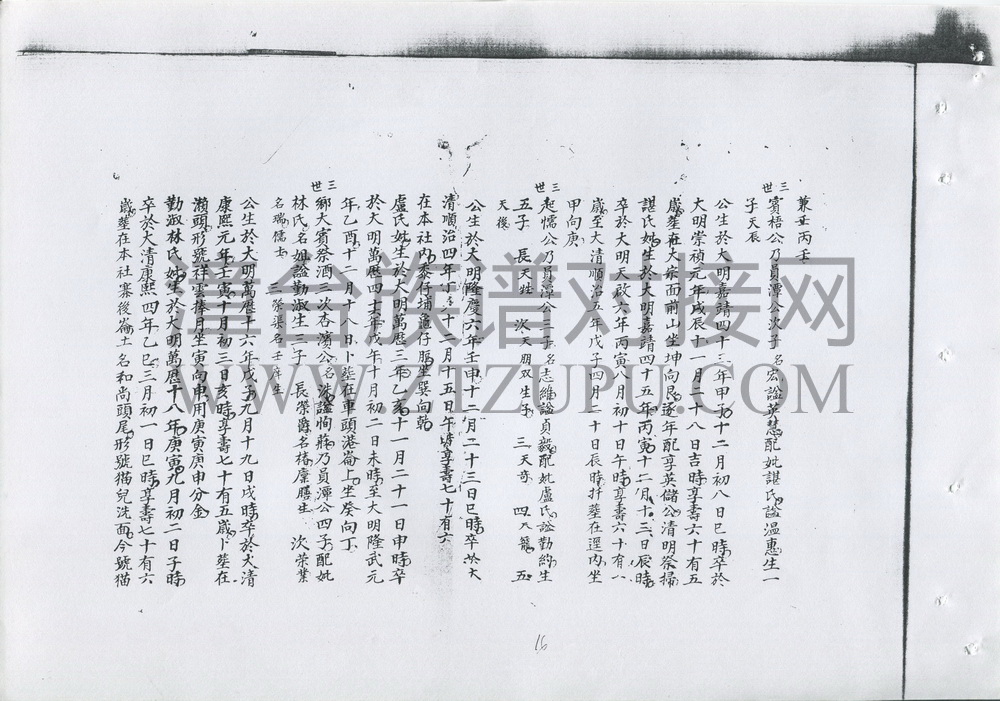 兼丙壬
三世 賓梧公乃員潭公次子名宏諡英慧配妣諶氏諡温惠生一
子天辰
公生於大明嘉靖四十三年甲子十二月初八日巳時卒於
大明崇禎元年戊辰十一月二十八日吉時享壽六十有五
歲塟在大宗面前山坐坤向艮逐年配享英儲公清明祭掃
諶氏妣生於大明嘉靖四十五年丙寅十二月十三日辰時
卒於大明天啟六年丙寅八月初十日午時享壽六十有八
歲至大清順治五年戊子四月二十日辰時扦塟在遝內坐
甲向庚
三世 起懦公乃員潭公三子名志維諡貞毅配妣盧氏諡勤約生
五子 長天甡 次天朋双生子 三天奇 四天龍 五
天後
公生於大明隆慶六年壬申十二月二十三日巳時卒於大
清順治四年十二月十五日午時享壽七十有六
在本社內黍仔埔龜仔脰坐巽向乾
盧氏妣生於大明萬曆三年乙亥十一月二十一日申時卒
於大明萬曆四十年戊午十月初二日未時至大明隆武元
年乙酉十二月十八日卜塟在車頭港崙上坐癸向丁
三世 鄉大賓祭酒三次杏濱公名洙諡恂蔣乃員潭公四子配妣
林氏名姐諡勤淑生三子 長榮爵名椿廩膳生 次榮業
名瑞儒士 三榮渠名壬庠生
公生於大明萬曆十六年戊子九月十九日戌時卒於大清
康熙元年壬寅十月初三日亥時享壽七十有五歲卜塟在
瀨頭形號祥雲捧月坐寅向申用庚寅庚申分金
勤淑林氏妣生於大明萬曆十八年庚寅九月初二日子時
卒於大清康熙四年乙巳三月初一日巳時享壽七十有六
歲塟在本社寨後崙土名和尚頭尾形號猫兒洗面今號猫
16
臺合族谱对接网
WWW.ZTZUPU.COM